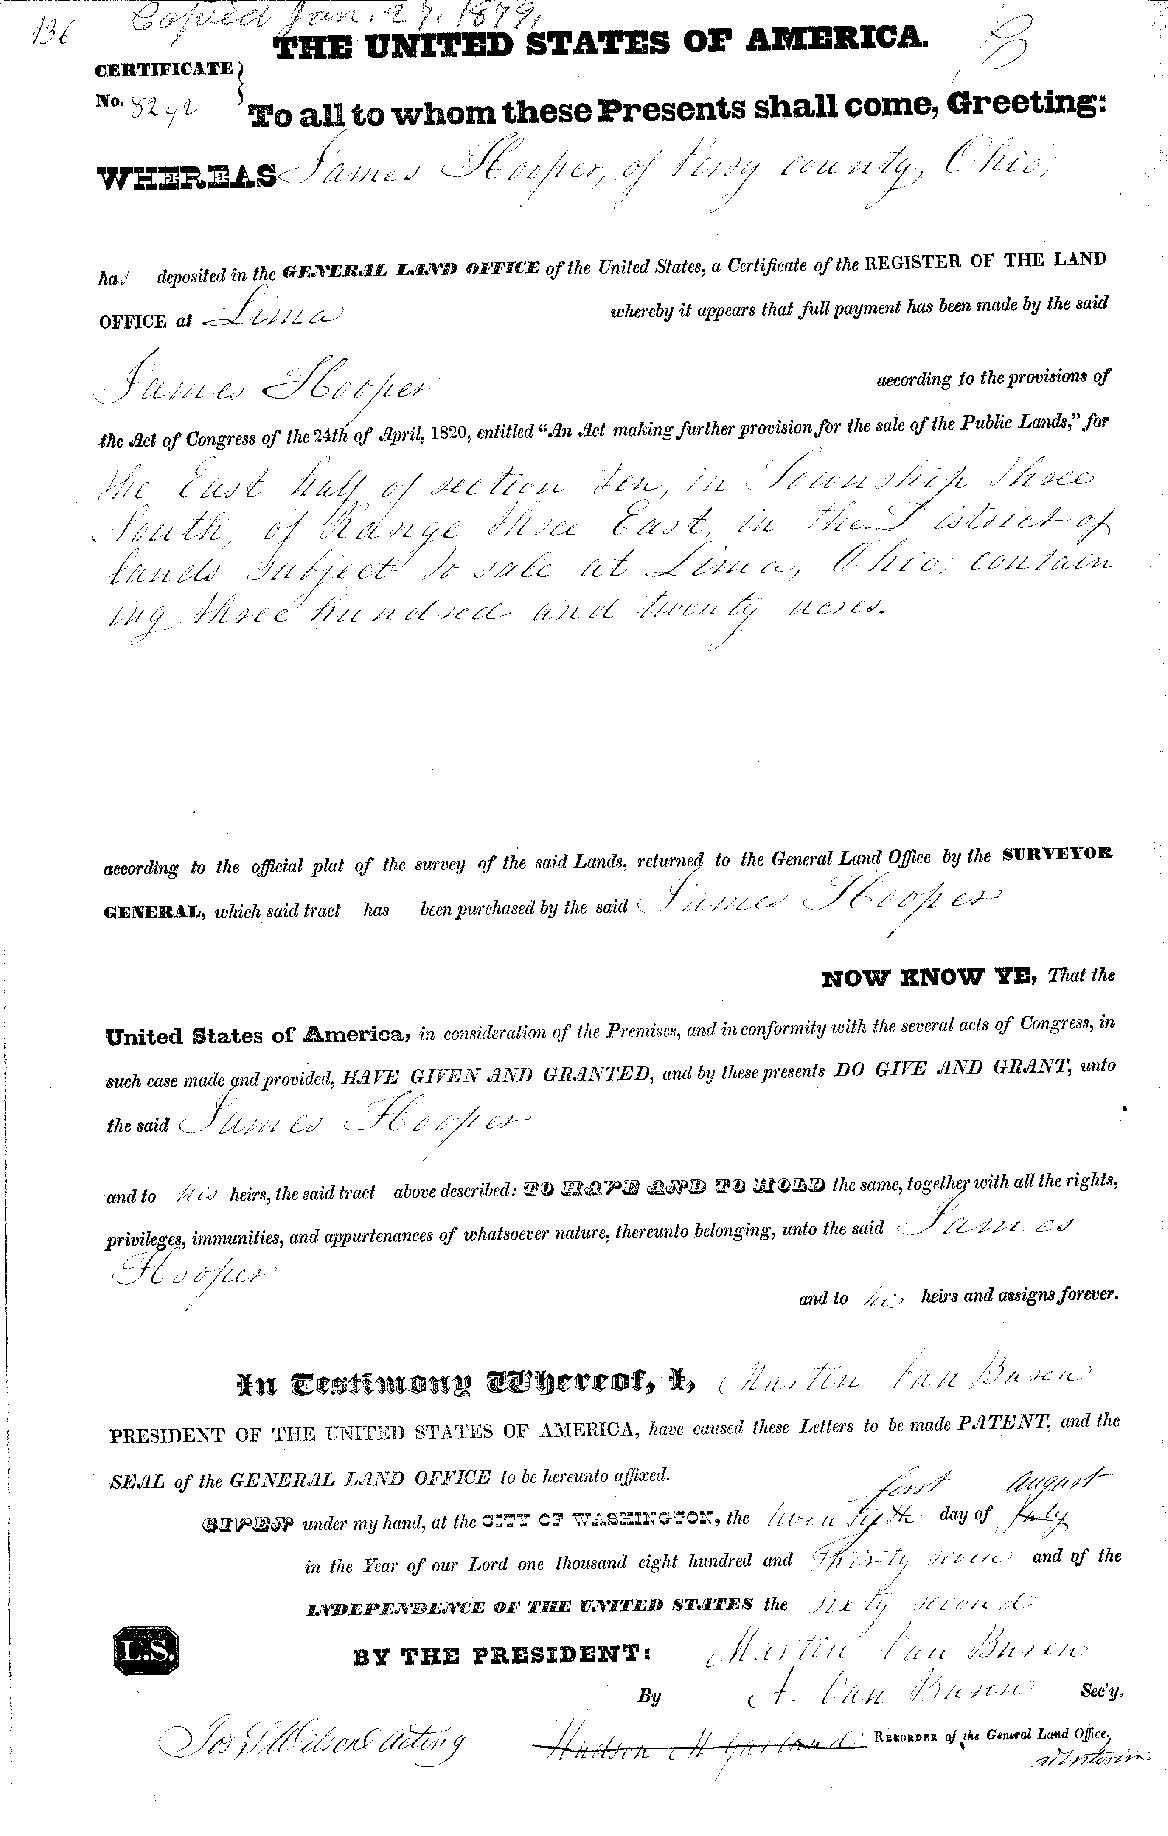 136 Copied Jan. 27, 1879.
THE UNITED STATES OF AMERICA.
CERTIFICATE
No. 8242
To all to whom these Presents shall come, Greeting:
WHEREAS James Hooper, of Perry county, Ohio,
has deposited in the GENERAL LAND OFFICE of the United States, a Certificate of the REGISTER OF THE LAND
OFFICE at Lima whereby it appears that full payment has been made by the said
James Hooper according to the provisions of
the Act of Congress of the 24th of April, 1820, entitled “An Act making further provision for the sale of the Public Lands,” for
the East half of section ten, in Township three
South, of Range three East, in the District of
lands subject to sale at Lima, Ohio, contain
ing three hundred and twenty acres.
according to the official plat of the survey of the said Lands, returned to the General Land Office by the SURVEYOR
GENERAL, which said tract has been purchased by the said James Hooper
NOW KNOW YE, That the
United States of America, in consideration of the Premises, and in conformity with the several acts of Congress, in
such case made and provided, HAVE GIVEN AND GRANTED, and by these presents DO GIVE AND GRANT, unto
the said James Hooper
and to his heirs, the said tract above described: TO HAVE AND TO HOLD the same, together with all the rights,
privileges, immunities, and appurtenances of whatsoever nature, thereunto belonging, unto the said James
Hooper
and to his heirs and assigns forever.
In Testimony Whereof, I, Martin Van Buren
PRESIDENT OF THE UNITED STATES OF AMERICA, have caused these Letters to be made PATENT, and the
SEAL of the GENERAL LAND OFFICE to be hereunto affixed.
first August
GIVEN under my hand, at the CITY OF WASHINGTON, the twentyfifth day of July
in the Year of our Lord one thousand eight hundred and Thirty seven and of the
INDEPENDENCE OF THE UNITED STATES the sixty second
L.S. BY THE PRESIDENT: Martin Van Buren
By A. Van Buren Sec'y.
Jos S Wilson Acting Hudson M Garland RECORDER of the General Land Office,
ad interim